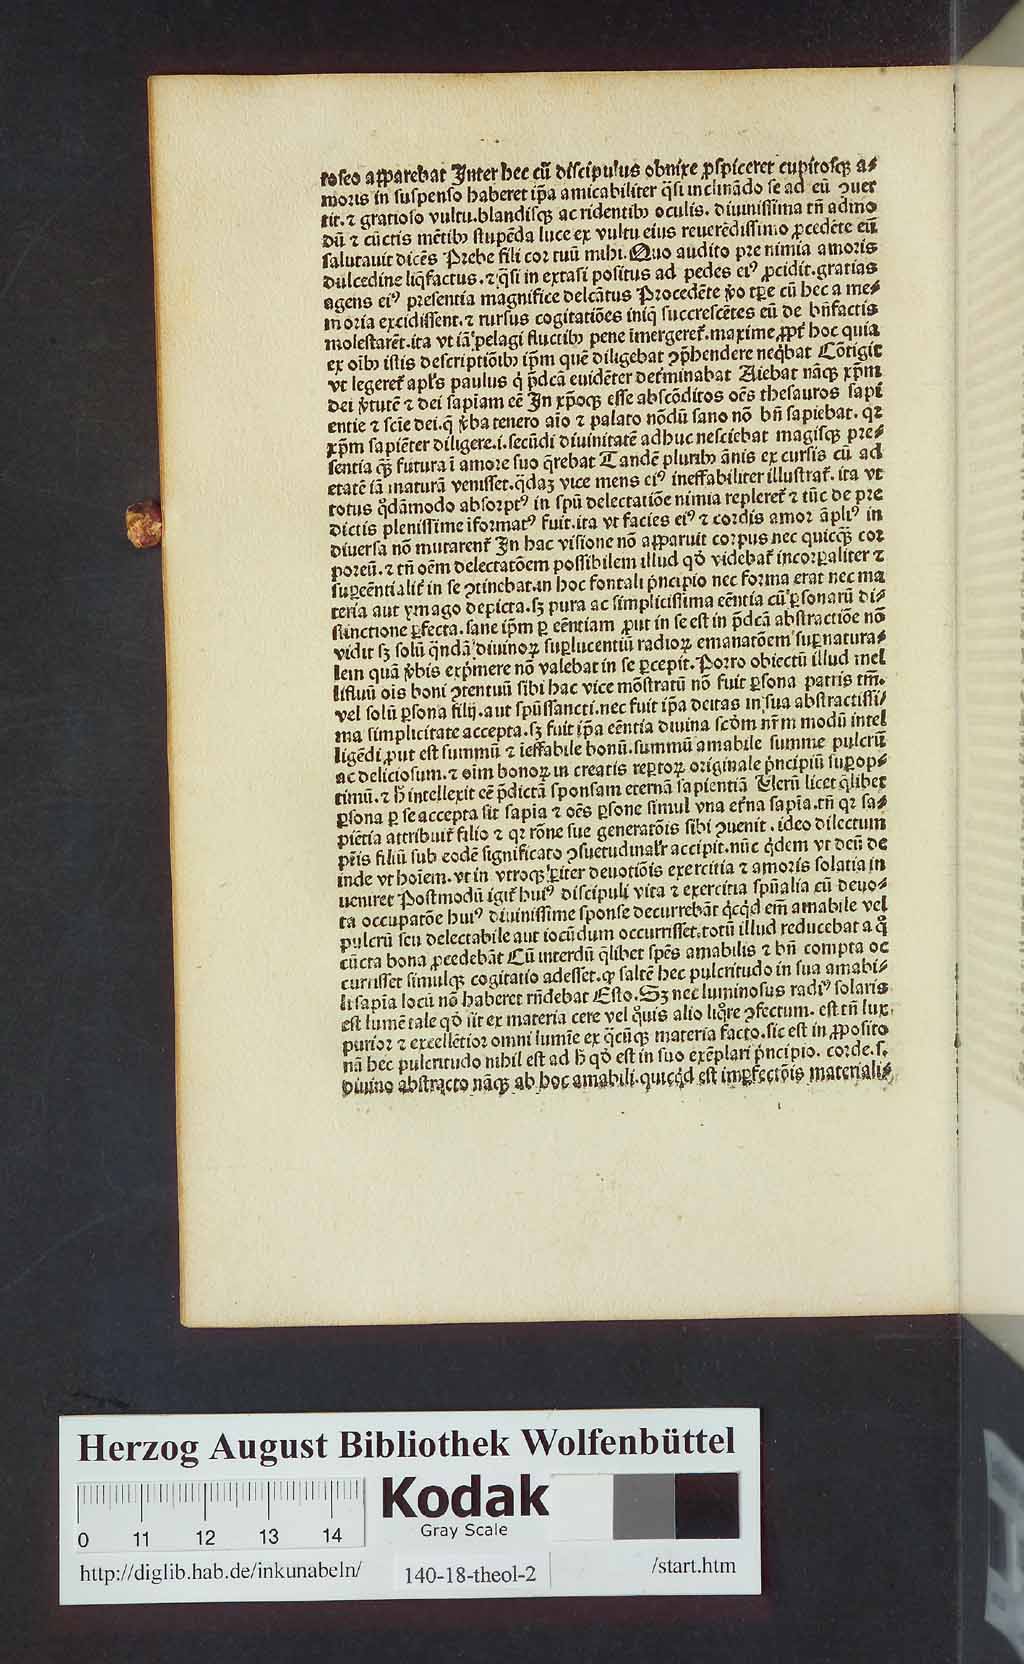 roseo apparebat Inter hec cū discipulus obnixe ꝓspiceret cupitosqꝫ a⸗
moris in suspenso haberet ip̄a amicabiliter q̄si inclinādo se ad eū ꝯuer
tit. ⁊ gratioso vultu. blandisqꝫ ac ridentibꝫ oculis. diuinissima tn̄ admo
dū ⁊ cūctis mētibꝫ stupēda luce ex vultu eius reuerēdissimo ꝓcedēte eū
salutauit dicēs Prebe fili cor tuū mihi. Quo audito pre nimia amoris
dulcedine liq̄factus. ⁊ q̄si in extasi positus ad pedes eiꝰ ꝓcidit. gratias
agens eiꝰ presentia magnifice delcātus Procedēte v̓o tꝑe cū hec a me⸗
moria excidissent. ⁊ rursus cogitatiōes iniq̄ succrescētes eū de bn̄factis
molestarēt. ita vt iā pelagi fluctibꝫ pene īmergeret᷑. maxime ꝓpt᷑ hoc quia
ex oībꝫ istis descriptiōibꝫ ip̄m quē diligebat ꝯp̄hendere neq̄bat Cōtigit
vt legeret᷑ apl̓s paulus q̓ p̄dcā euidēter det᷑minabat Aiebat nāqꝫ xp̄m
dei v̓tutē ⁊ dei sapīam eē In xp̄oqꝫ esse abscōditos oēs thesauros sapī
entie ⁊ scīe dei. q̄ v̓ba tenero aīo ⁊ palato nōdū sano nō bn̄ sapiebat. qꝛ
xp̄m sapiēter diligere. i. secūdi diuinitatē adhuc nesciebat magisqꝫ pre⸗
sentia qꝫ̄ futura ī amore suo q̄rebat Tandē pluribꝫ ānis ex cursis cū ad
etatē iā maturā venisset. q̄daꝫ vice mens eiꝰ ineffabiliter illustrat᷑. ita vt
totus q̊dāmodo absorptꝰ in spū delectatiōe nimia repleret᷑ ⁊ tūc de pre
dictis plenissime īformatꝰ fuit. ita vt facies eiꝰ ⁊ cordis amor āpliꝰ in
diuersa nō mutarent᷑ In hac visione nō apparuit corpus nec quicqꝫ̄ cor
poreū. ⁊ tn̄ oēm delectatōem possibilem illud qd̓ videbat᷑ incorꝑaliter ⁊
suꝑcēntialit᷑ in se ꝯtinebat. in hoc fontali p̓ncipio nec forma erat nec ma
teria aut ymago depicta. sꝫ pura ac simplicissima eēntia cū ꝑsonarū di⸗
stinctione ꝑfecta. sane ip̄m ꝑ eēntiam ꝓut in se est in p̄dcā abstractiōe nō
vidit sꝫ solū q̄ndā diuinoꝝ suꝑlucentiū radioꝝ emanatōem suꝑnatura⸗
lem quā v̓bis exp̓mere nō valebat in se ꝑcepit. Porro obiectū illud mel
lifluū oīs boni ꝯtentuū sibi hac vice mōstratū nō fuit ꝑsona patris tm̄.
vel solū ꝑsona filij. aut spūssancti. nec fuit ip̄a deitas in sua abstractissi⸗
ma simplicitate accepta. sꝫ fuit ip̄a eēntia diuina scd̓m nr̄m modū intel
ligēdi ꝓut est summū ⁊ īeffabile bonū. summū amabile summe pulcrū
ac deliciosum. ⁊ oīm bonoꝝ in creatis reꝑtoꝝ originale p̓ncipiū suꝑop⸗
timū. ⁊ h̓ intellexit eē p̄dictā sponsam eternā sapientiā Uerū licet q̄libet
ꝑsona ꝑ se accepta sit sapīa ⁊ oēs ꝑsone simul vna et᷑na sapīa. tn̄ qꝛ sa⸗
piētia attribuit᷑ filio ⁊ qꝛ rōne sue generatōis sibi ꝯuenit. ideo dilectum
pr̄is filiū sub eodē significato ꝯsuetudinal̓r accipit. nūc q̓dem vt deū de
inde vt hoīem. vt in vtroqꝫ ꝑiter deuotiōis exercitia ⁊ amoris solatia in
ueniret Postmodū igit᷑ huiꝰ discipuli vita ⁊ exercitia spūalia cū deuo⸗
ta occupatōe huiꝰ diuinissime sponse decurrebāt q̓cq̓d em̄ amabile vel
pulcrū seu delectabile aut iocūdum occurrisset. totū illud reducebat a q̊
cūcta bona ꝓcedebāt Cū interdū q̄libet spēs amabilis ⁊ bn̄ compta oc
currisset simulqꝫ cogitatio adesset. ꝙ saltē hec pulcritudo in sua amabi⸗
li sapīa locū nō haberet rn̄debat Esto. Sꝫ nec luminosus radiꝰ solaris
est lumē tale qd̓ sit ex materia cere vel q̊uis alio liq̊re ꝯfectum. est tn̄ lux
purior ⁊ excellētior omni lumīe ex q̄cūqꝫ materia facto. sic est in ꝓposito
nā hec pulcritudo nihil est ad h̓ qd̓ est in suo exēplari p̓ncipio. corde. s.
diuino abstracto nāqꝫ ab hoc amabili. quicq̓d est imꝑfectōis materiali⸗
Herzog August Bibliothek Wolfenbüttel
Kodak
Gray Scale
0 11 12 13 14
http://diglib.hab.de/inkunabeln/ 140-18-theol-2 /start.htm